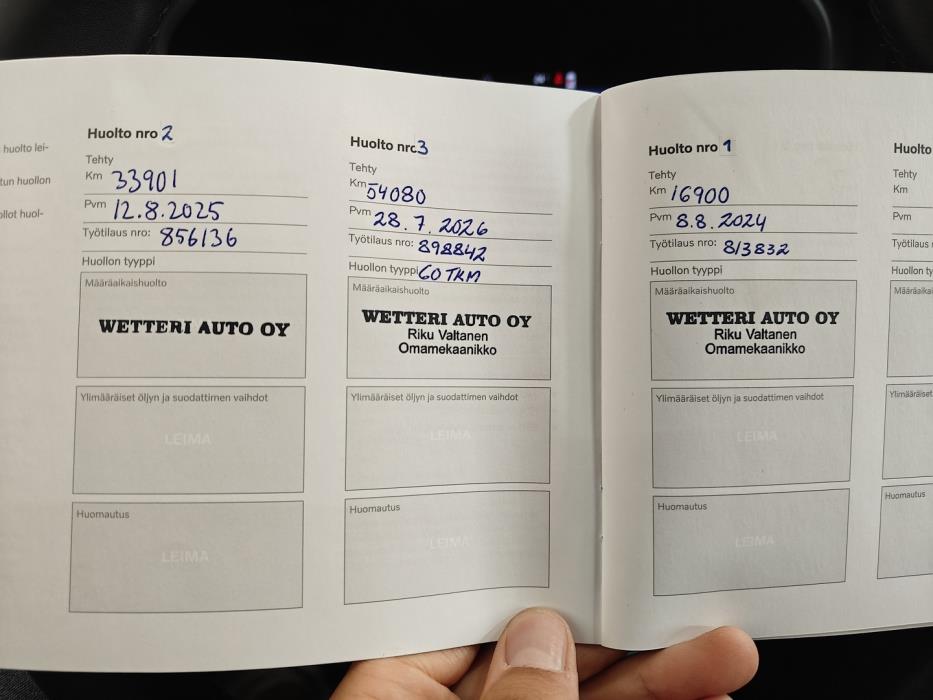 huolto lei-
tun huollon
ollot huol-
Huolto nro 2
Tehty
Km 33901
Pvm 12.8.2025
Työtilaus nro: 856136
Huollon tyyppi
Määräaikaishuolto
WETTERI AUTO OY
Ylimääräiset öljyn ja suodattimen vaihdot
LEIMA
Huomautus
LEIMA
Huolto nro 3
Tehty
Km 54080
Pvm 28.7.2026
Työtilaus nro: 898842
Huollon tyyppi 60 TKM
Määräaikaishuolto
WETTERI AUTO OY
Riku Valtanen
Omamekaanikko
Ylimääräiset öljyn ja suodattimen vaihdot
LEIMA
Huomautus
LEIMA
Huolto nro 1
Tehty
Km 16900
Pvm 8.8.2024
Työtilaus nro: 813832
Huollon tyyppi
Määräaikaishuolto
WETTERI AUTO OY
Riku Valtanen
Omamekaanikko
Ylimääräiset öljyn ja suodattimen vaihdot
LEIMA
Huomautus
LEIMA
Huolto
Tehty
Km
Pvm
Työtilaus
Huollon ty
Määräaikai
Ylimääräiset
Huomautus